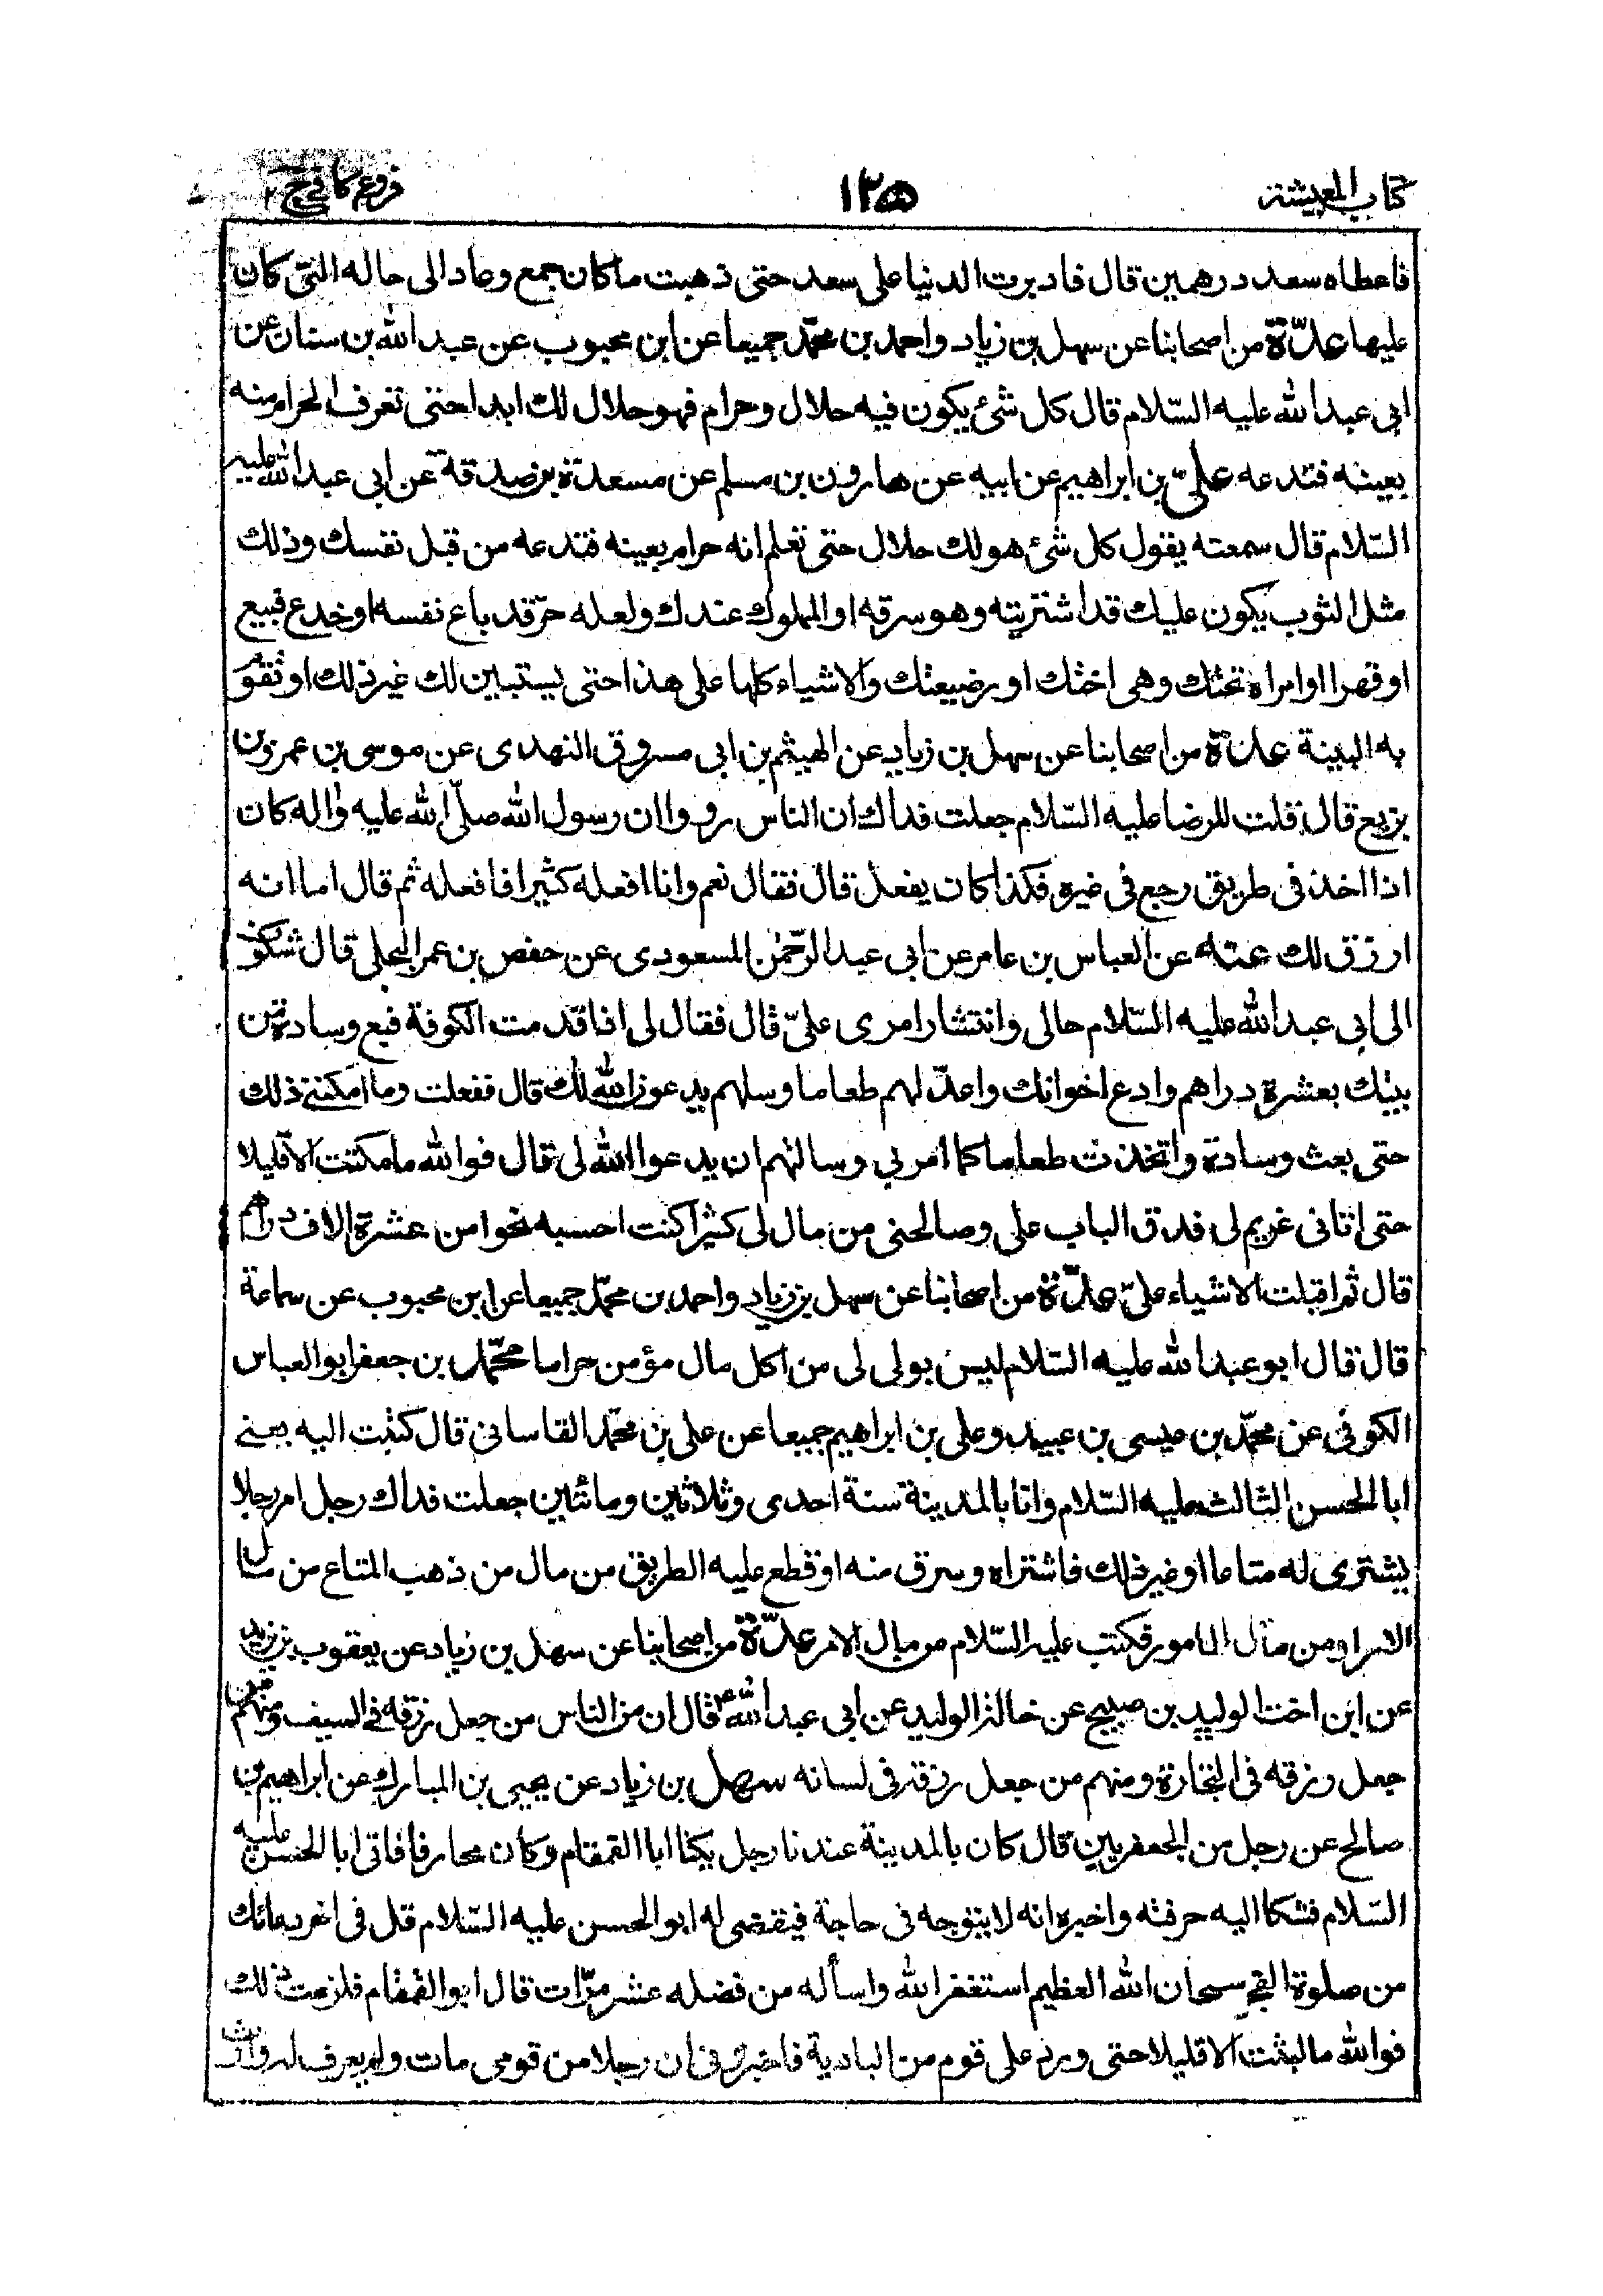 كتاب المعيشة
١٢٥
فروع كافي ج ٢
فاعطاه سعد درهمين قال فادبرت الدنيا على سعد حتى ذهبت ما كان جمع وعاد الى حاله التى كان
عليها عدّة من اصحابنا عن سهل بن زياد واحمد بن محمّد جميعا عن ابن محبوب عن عبد الله بن سنان عن
ابى عبد الله عليه السّلام قال كل شئ يكون فيه حلال وحرام فهو حلال لك ابدا حتى تعرف الحرام منه
بعينه فتدعه علىّ بن ابراهيم عن ابيه عن هارون بن مسلم عن مسعدة بن صدقة عن ابى عبد الله عليه
السّلام قال سمعته يقول كل شئ هو لك حلال حتى تعلم انه حرام بعينه فتدعه من قبل نفسك وذلك
مثل الثوب يكون عليك قد اشتريته وهو سرقه او المملوك عندك ولعله حرّ قد باع نفسه او خدع فبيع
او قهرا او امراة تحتك وهى اختك او رضيعتك والاشياء كلها على هذا حتى يستبين لك غير ذلك او تقوم
به البينة عدّة من اصحابنا عن سهل بن زياد عن الهيثم بن ابى مسروق النهدى عن موسى بن عمر بن
بزيع قال قلت للرضا عليه السّلام جعلت فداك ان الناس رووا ان رسول الله صلّى الله عليه واله كان
اذا اخذ فى طريق رجع فى غيره فكذا كان يفعل قال فقال نعم وانا افعله كثيرا فافعله ثم قال اما انه
ارزق لك عنه عن العباس بن عامر عن ابى عبد الرّحمٰن المسعودى عن حفص بن عمر البجلى قال شكوت
الى ابى عبد الله عليه السّلام حالى وانتشار امرى علىّ قال فقال لى اذا قدمت الكوفة فبع وسادة من
بيتك بعشرة دراهم وادع اخوانك واعدّ لهم طعاما وسلهم يدعون الله لك قال ففعلت وما امكننى ذلك
حتى بعت وسادة واتخذت طعاما كما امرنى وسالتهم ان يدعوا الله لى قال فوالله ما مكثت الا قليلا
حتى اتانى غريم لى فدق الباب على وصالحنى من مال لى كثيرا كنت احسبه نحوا من عشرة الاف درهم
قال ثم اقبلت الاشياء علىّ عدّة من اصحابنا عن سهل بن زياد واحمد بن محمّد جميعا عن ابن محبوب عن سماعة
قال قال ابو عبد الله عليه السّلام ليس بولى لى من اكل مال مؤمن حراما محمّد بن جعفر ابو العباس
الكوفى عن محمّد بن عيسى بن عبيد وعلى بن ابراهيم جميعا عن على بن محمّد القاسانى قال كتبت اليه يعنى
ابا الحسن الثالث عليه السّلام وانا بالمدينة سنة احدى وثلاثين ومائتين جعلت فداك رجل امر رجلا
يشترى له متاعا او غير ذلك فاشتراه وسرق منه او قطع عليه الطريق من مال من ذهب المتاع من مال
الامر او من مال المامور فكتب عليه السّلام من مال الامر عدّة من اصحابنا عن سهل بن زياد عن يعقوب بن يزيد
عن ابن اخت الوليد بن صبيح عن خاله الوليد عن ابى عبد الله ع قال ان من الناس من جعل رزقه فى السيف ومنهم من
جعل ورزقه فى التجارة ومنهم من جعل رزقه فى لسانه سهل بن زياد عن يحيى بن المبارك عن ابراهيم بن
صالح عن رجل من الجعفريين قال كان بالمدينة عندنا رجل يكنا ابا القمقام وكان محارفا فاتى ابا الحسن عليه
السّلام فشكا اليه حرفته واخبره انه لا يتوجه فى حاجة فيقضى له ابو الحسن عليه السّلام قل فى اخر دعائك
من صلوة الفجر سبحان الله العظيم استغفر الله واسأله من فضله عشر مرّات قال ابو القمقام فلزمت ذلك
فوالله ما لبثت الا قليلا حتى ورد على قوم من البادية فاخبرونى ان رجلا من قومى مات ولم يعرف له وارث